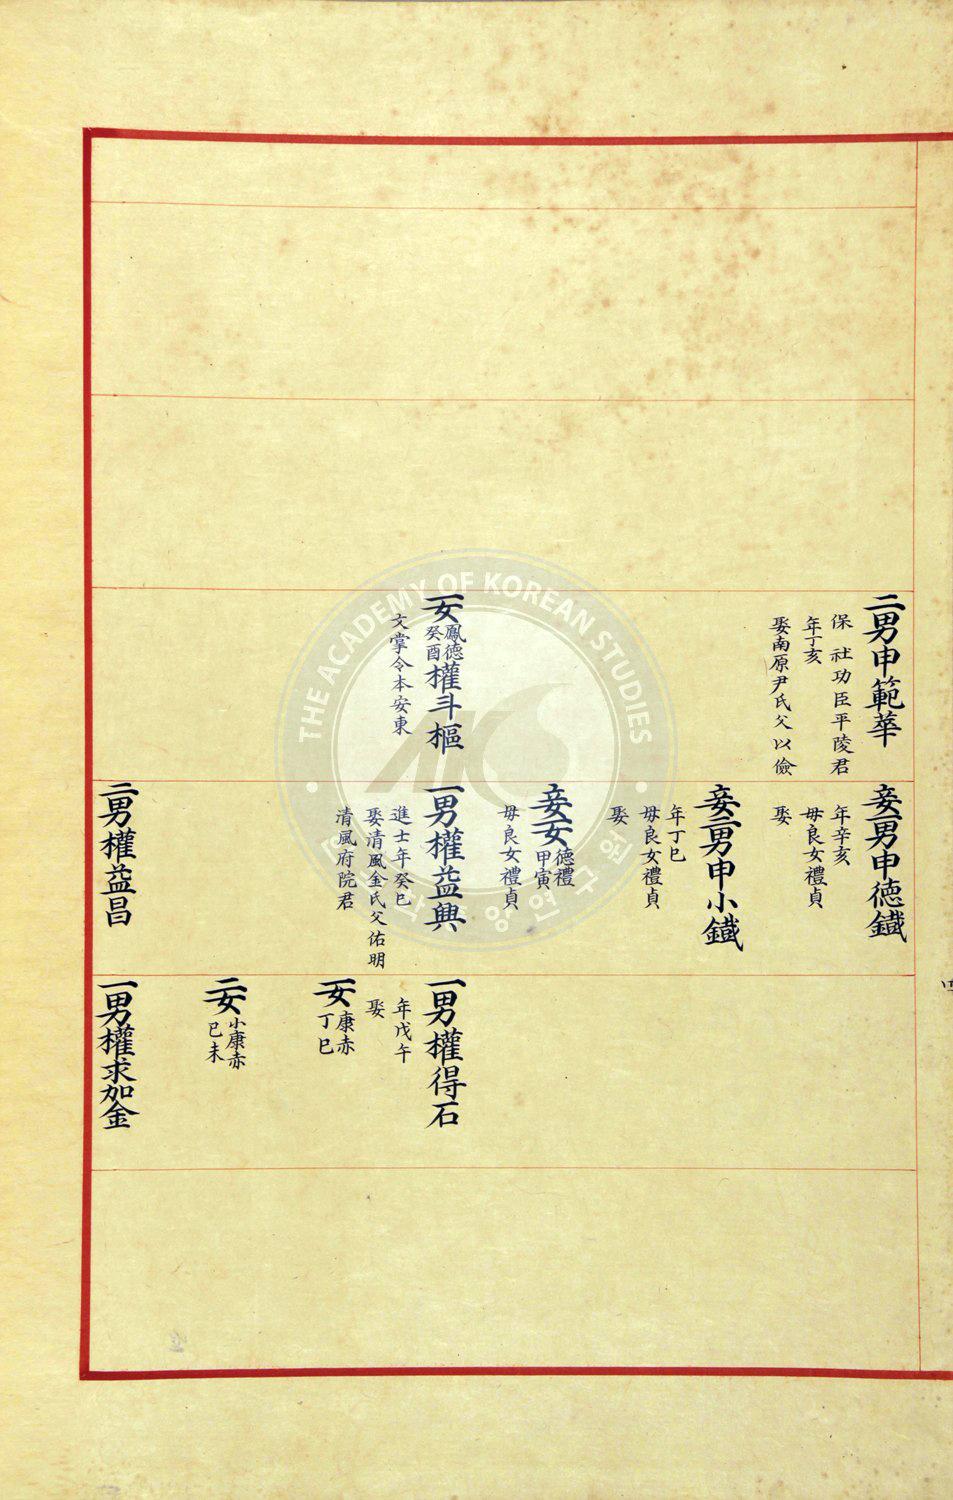 二男申範華
保社功臣平陵君
年丁亥
娶南原尹氏父以儉
一女鳳德癸酉權斗樞
文掌令本安東
妾一男申德鐵
年辛亥
母良女禮貞
娶
妾二男申小鐵
年丁巳
母良女禮貞
娶
妾一女德禮甲寅
母良女禮貞
一男權益興
進士年癸巳
娶清風金氏父佑明
清風府院君
二男權益昌
一男權得石
年戊午
娶
一女康赤丁巳
二女小康赤己未
一男權求加金
THE ACADEMY OF KOREAN STUDIES
AKS